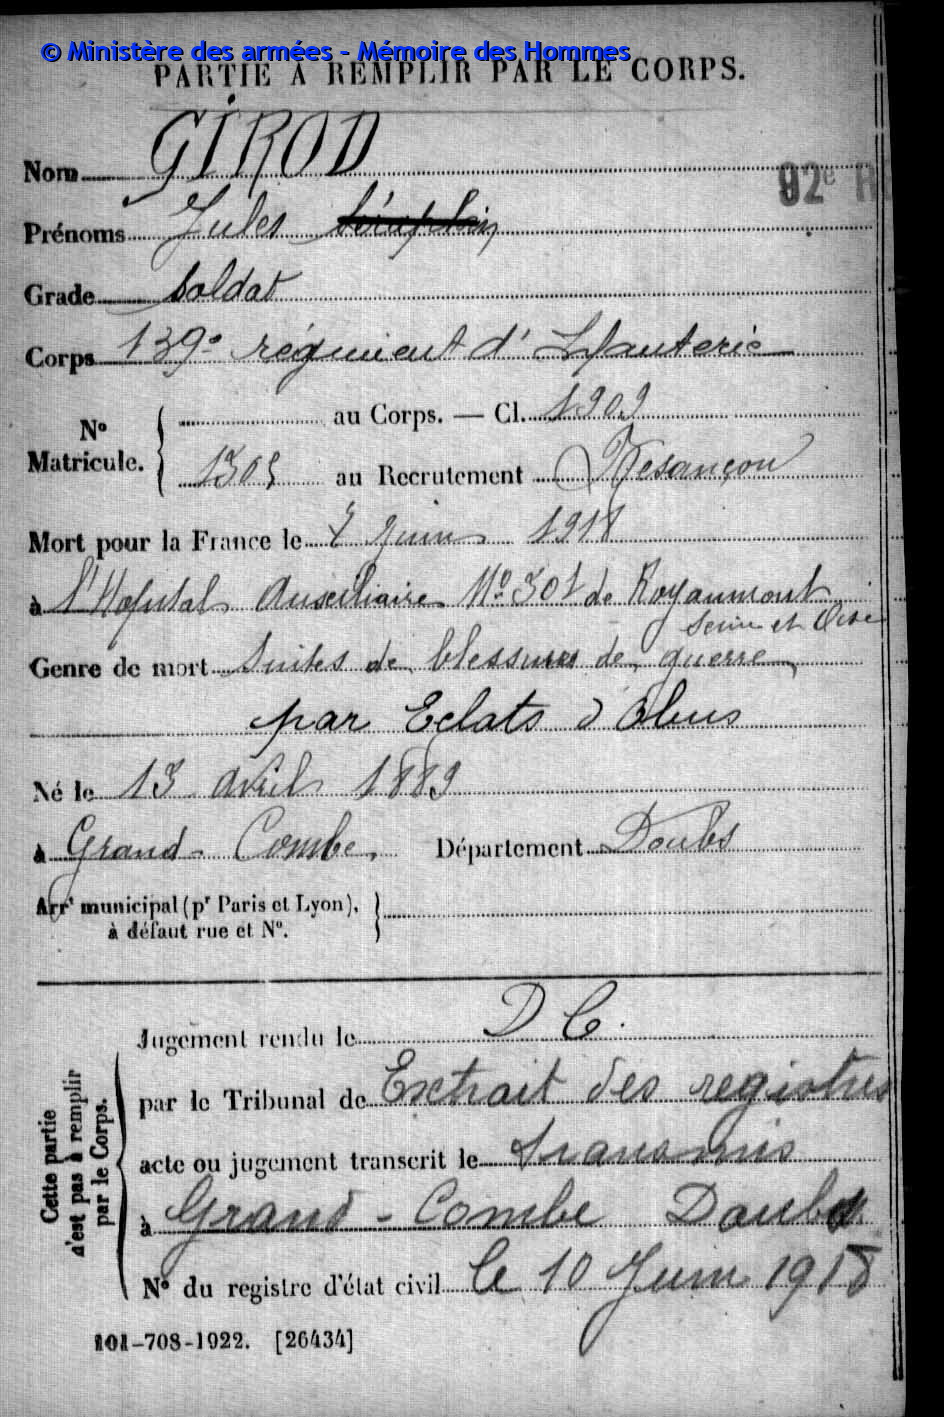 © Ministère des armées - Mémoire des Hommes
PARTIE À REMPLIR PAR LE CORPS.
Nom GIROD
92e R
Prénoms Jules
Grade Soldat
Corps 139e régiment d'Infanterie
N° Matricule. { au Corps. — Cl. 1909
1305 au Recrutement Besançon
Mort pour la France le Juin 1918
à l'Hopital Auxiliaire No 301 de Royaumont
Seine et Oise
Genre de mort Suites de blessures de guerre
par Eclats d'Obus
Né le 13 Avril 1889
à Grand-Combe, Département Doubs
Arrt municipal (pr Paris et Lyon), }
à défaut rue et N°.
Cette partie n'est pas à remplir par le Corps.
Jugement rendu le D C.
par le Tribunal de Extrait des registres
acte ou jugement transcrit le transmis
à Grand-Combe Doubs
N° du registre d'état civil le 10 Juin 1918
101-708-1922. [26434]